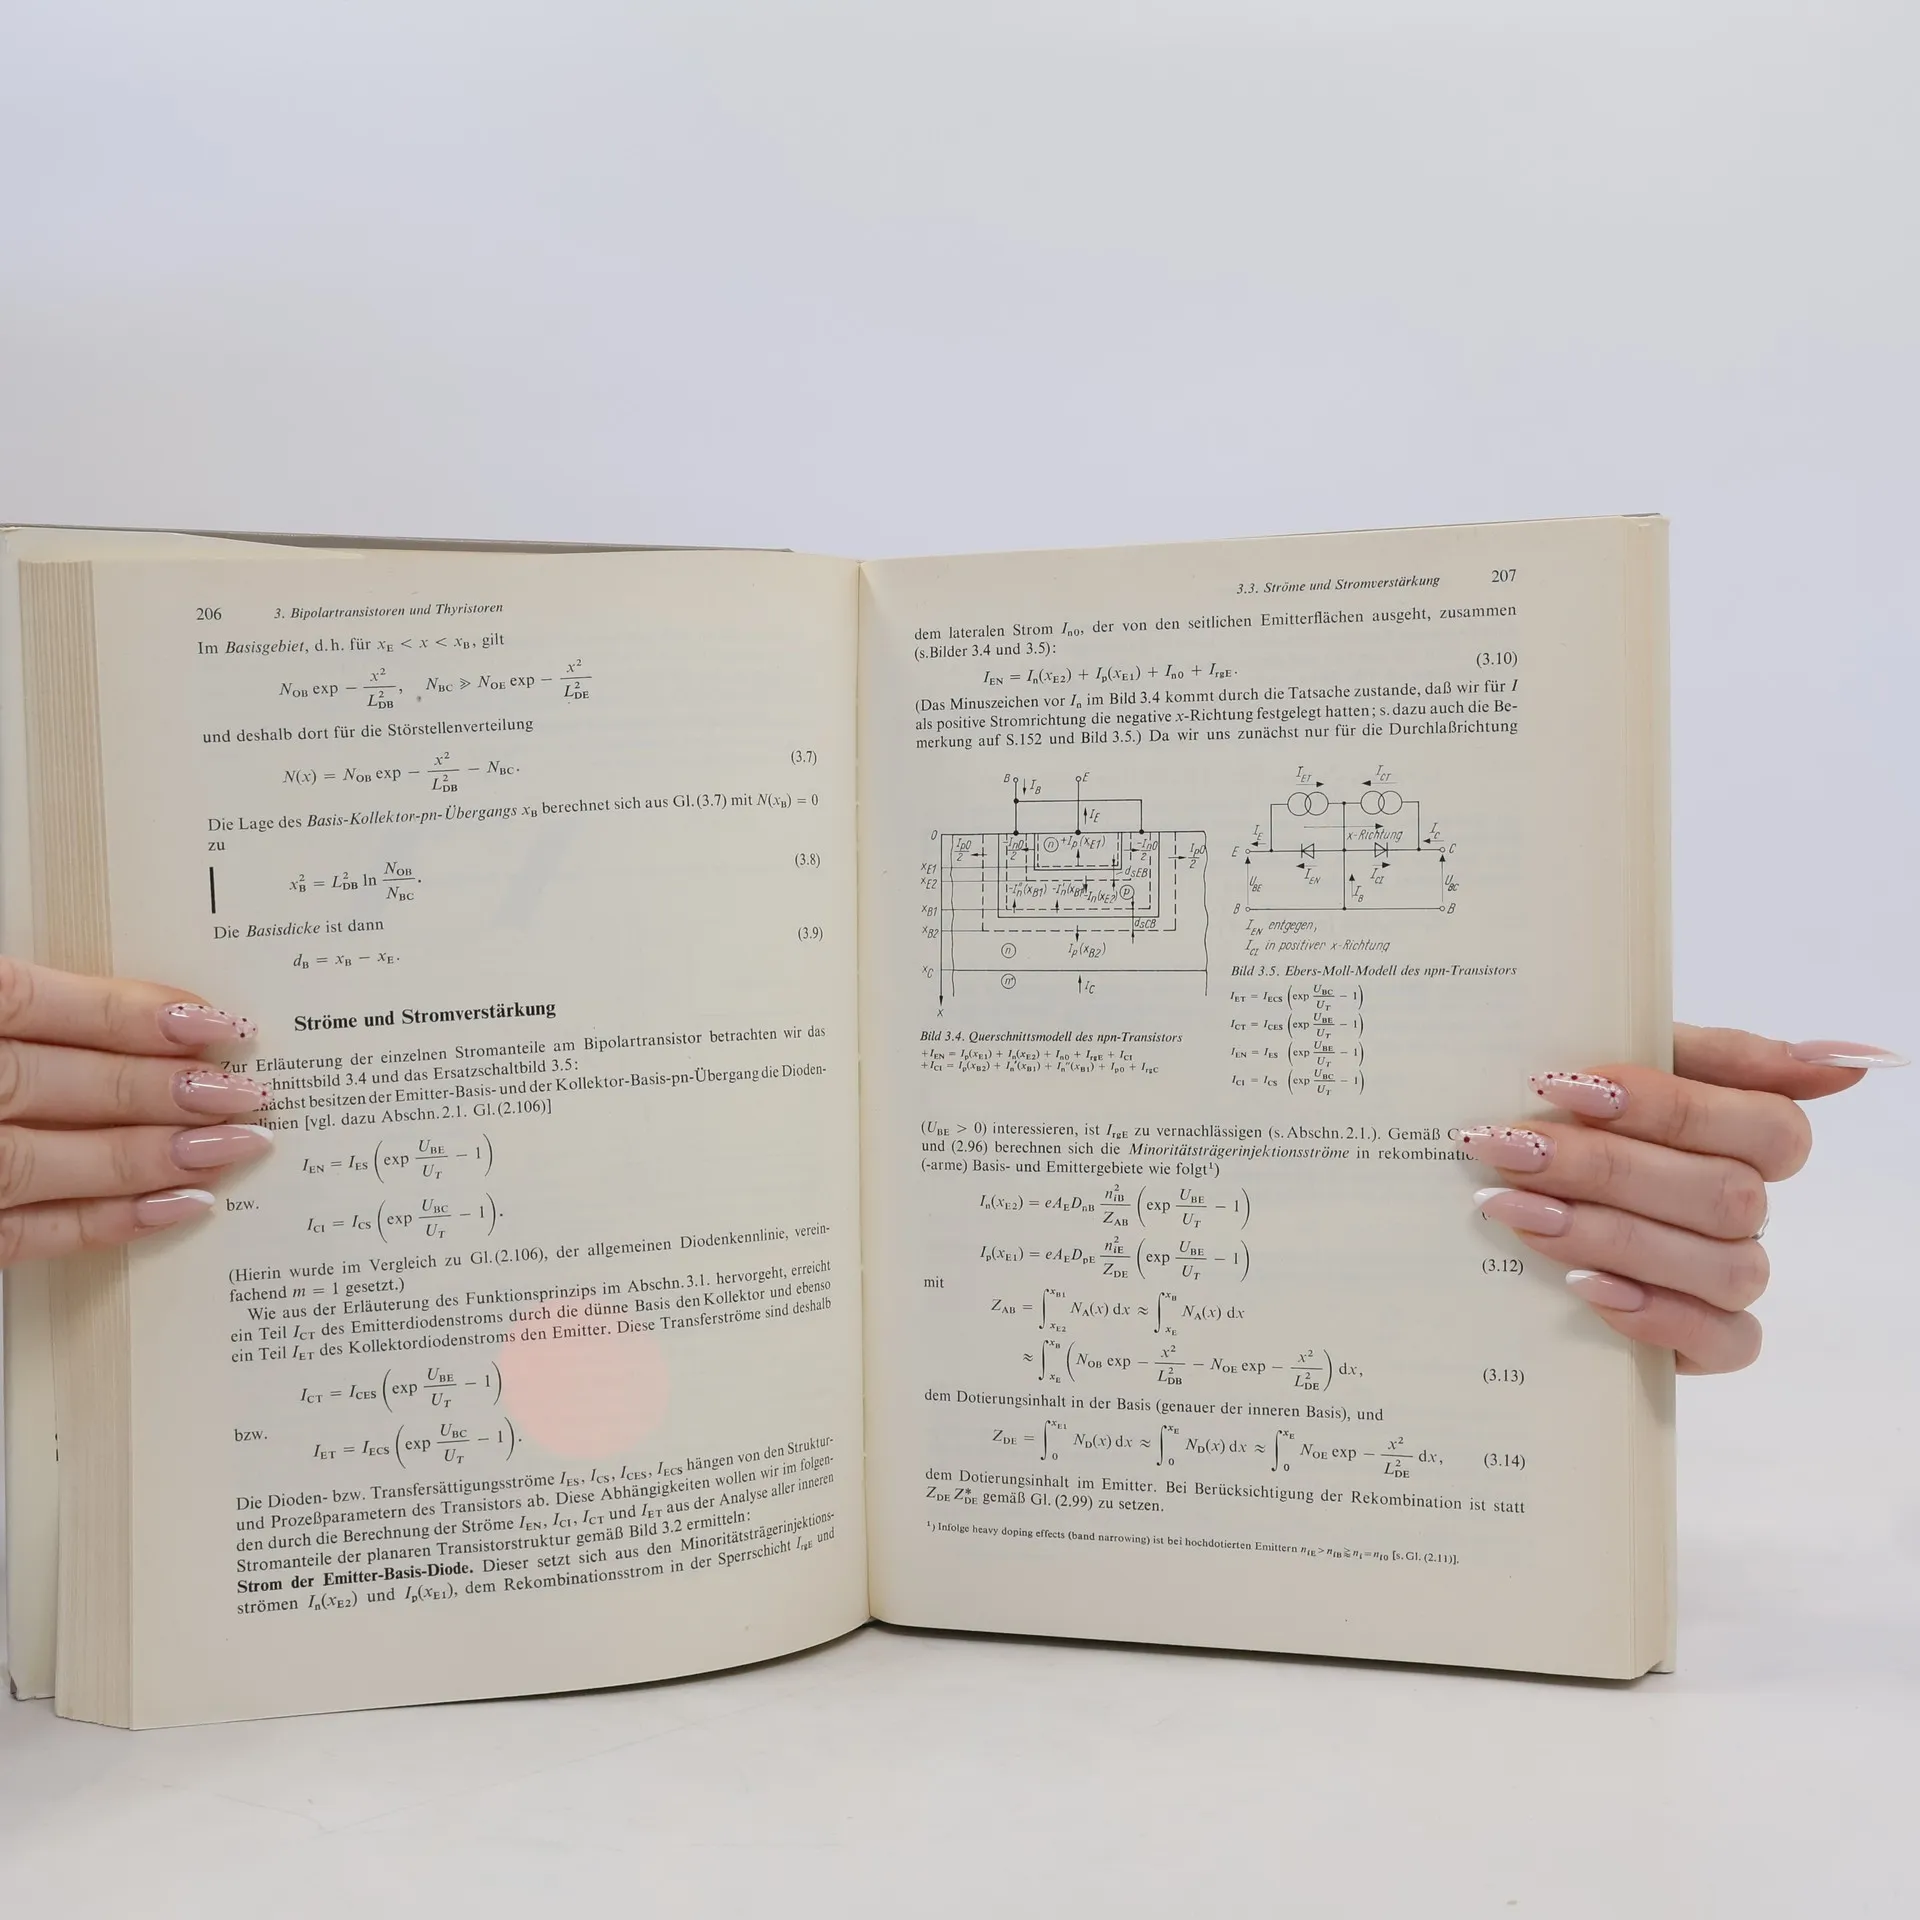 206 3. Bipolartransistoren und Thyristoren
Im Basisgebiet, d.h. für x_E < x < x_B, gilt
N_OB exp − x²/L²_DB, N_BC ≫ N_OE exp − x²/L²_DE
und deshalb dort für die Störstellenverteilung
N(x) = N_OB exp − x²/L²_DB − N_BC. (3.7)
Die Lage des Basis-Kollektor-pn-Übergangs x_B berechnet sich aus Gl.(3.7) mit N(x_B) = 0
zu
x²_B = L²_DB ln N_OB/N_BC. (3.8)
Die Basisdicke ist dann
d_B = x_B − x_E. (3.9)
Ströme und Stromverstärkung
Zur Erläuterung der einzelnen Stromanteile am Bipolartransistor betrachten wir das
chnittsbild 3.4 und das Ersatzschaltbild 3.5:
ächst besitzen der Emitter-Basis- und der Kollektor-Basis-pn-Übergang die Dioden-
linien [vgl. dazu Abschn. 2.1. Gl. (2.106)]
I_EN = I_ES (exp U_BE/U_T − 1)
bzw.
I_CI = I_CS (exp U_BC/U_T − 1).
(Hierin wurde im Vergleich zu Gl. (2.106), der allgemeinen Diodenkennlinie, verein-
fachend m = 1 gesetzt.)
Wie aus der Erläuterung des Funktionsprinzips im Abschn. 3.1. hervorgeht, erreicht
ein Teil I_CT des Emitterdiodenstroms durch die dünne Basis den Kollektor und ebenso
ein Teil I_ET des Kollektordiodenstroms den Emitter. Diese Transferströme sind deshalb
I_CT = I_CES (exp U_BE/U_T − 1)
bzw.
I_ET = I_ECS (exp U_BC/U_T − 1).
Die Dioden- bzw. Transfersättigungsströme I_ES, I_CS, I_CES, I_ECS hängen von den Struktur-
und Prozeßparametern des Transistors ab. Diese Abhängigkeiten wollen wir im folgen-
den durch die Berechnung der Ströme I_EN, I_CI, I_CT und I_ET aus der Analyse aller inneren
Stromanteile der planaren Transistorstruktur gemäß Bild 3.2 ermitteln:
Strom der Emitter-Basis-Diode. Dieser setzt sich aus den Minoritätsträgerinjektions-
strömen I_n(x_E2) und I_p(x_E1), dem Rekombinationsstrom in der Sperrschicht I_rgE und
3.3. Ströme und Stromverstärkung 207
dem lateralen Strom I_n0, der von den seitlichen Emitterflächen ausgeht, zusammen
(s. Bilder 3.4 und 3.5):
I_EN = I_n(x_E2) + I_p(x_E1) + I_n0 + I_rgE. (3.10)
(Das Minuszeichen vor I_n im Bild 3.4 kommt durch die Tatsache zustande, daß wir für I
als positive Stromrichtung die negative x-Richtung festgelegt hatten; s. dazu auch die Be-
merkung auf S. 152 und Bild 3.5.) Da wir uns zunächst nur für die Durchlaßrichtung
B I_B E
I_E
0 I_p0/2 −I_n0/2 n +I_p(x_E1) −I_n0/2 I_p0/2
x_E1 d_sEB
x_E2 −I_n''(x_B1) −I_n'(x_B1) −I_n(x_E2) p
x_B1
x_B2 d_sCB
n I_p(x_B2)
x_C
n⁺ I_C
x
Bild 3.4. Querschnittsmodell des npn-Transistors
+I_EN = I_p(x_E1) + I_n(x_E2) + I_n0 + I_rgE + I_CI
+I_CI = I_p(x_B2) + I_n'(x_B1) + I_n''(x_B1) + I_p0 + I_rgC
I_ET I_CT
I_E x-Richtung I_C
E C
I_EN I_CI
U_BE I_B U_BC
B B
I_EN entgegen,
I_CI in positiver x-Richtung
Bild 3.5. Ebers-Moll-Modell des npn-Transistors
I_ET = I_ECS (exp U_BC/U_T − 1)
I_CT = I_CES (exp U_BE/U_T − 1)
I_EN = I_ES (exp U_BE/U_T − 1)
I_CI = I_CS (exp U_BC/U_T − 1)
(U_BE > 0) interessieren, ist I_rgE zu vernachlässigen (s. Abschn. 2.1.). Gemäß
und (2.96) berechnen sich die Minoritätsträgerinjektionsströme in
(-arme) Basis- und Emittergebiete wie folgt¹)
I_n(x_E2) = eA_E D_nB n²_iB/Z_AB (exp U_BE/U_T − 1)
I_p(x_E1) = eA_E D_pE n²_iE/Z_DE (exp U_BE/U_T − 1) (3.12)
mit
Z_AB = ∫_{x_E2}^{x_B1} N_A(x) dx ≈ ∫_{x_E}^{x_B} N_A(x) dx
≈ ∫_{x_E}^{x_B} (N_OB exp − x²/L²_DB − N_OE exp − x²/L²_DE) dx, (3.13)
dem Dotierungsinhalt in der Basis (genauer der inneren Basis), und
Z_DE = ∫_0^{x_E1} N_D(x) dx ≈ ∫_0^{x_E} N_D(x) dx ≈ ∫_0^{x_E} N_OE exp − x²/L²_DE dx, (3.14)
dem Dotierungsinhalt im Emitter. Bei Berücksichtigung der Rekombination ist statt
Z_DE Z*_DE gemäß Gl. (2.99) zu setzen.
¹) Infolge heavy doping effects (band narrowing) ist bei hochdotierten Emittern n_iE > n_iB ≷ n_i = n_i0 [s. Gl. (2.11)].